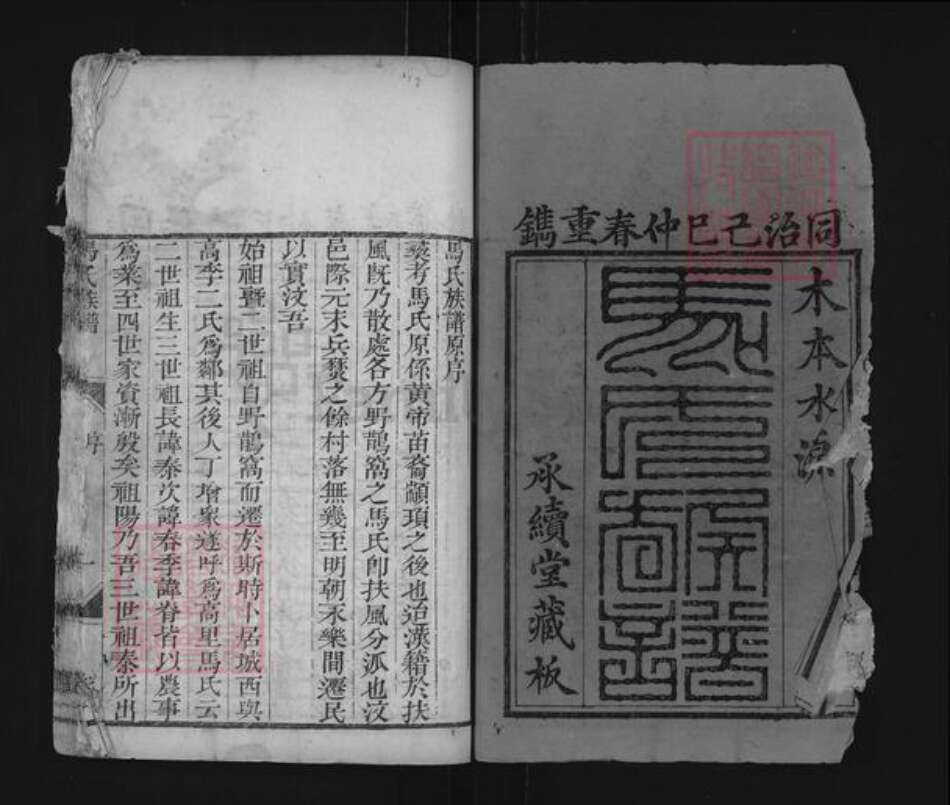 同治己巳仲春重鐫
木本水源
馬氏族譜
承續堂藏板
馬氏族譜原序
叅考馬氏原係黄帝苗裔顓頊之後也迨漢籍於扶
風旣乃散處各方野鵲窩之馬氏卽扶風分派也汶
邑際元末兵燹之餘村落無幾至明朝永樂間遷民
以實汶吾
始祖暨二世祖自野鵲窩而遷於斯時卜居城西與
高李二氏爲鄰其後人丁增衆遂呼爲高里馬氏云
二世祖生三世祖長諱泰次諱春季諱脊皆以農事
爲業至四世家資漸殷矣祖陽乃吾三世祖泰所出
馬氏族譜 序 一